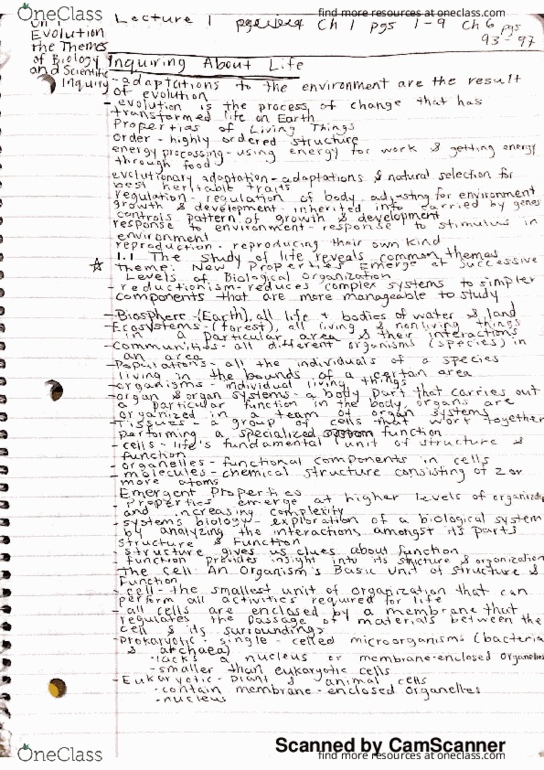 OneClass
find more resources at oneclass.com
Lecture 1 Ch 1 pgs 1-9 Ch 6 pgs
93-97
Evolution
the Themes
of Biology
and Scientific
Inquiry
Inquiring About Life
- adaptations to the environment are the result
of evolution
- evolution is the process of change that has
transformed life on Earth
Properties of Living Things
order - highly ordered structure
energy processing - using energy for work & getting energy
through food
evolutionary adaptation - adaptations & natural selection for
best heritable traits
regulation - regulation of body adjusting for environment
growth & development - inherited info carried by genes
controls pattern of growth & development
response to environment - response to stimulus in
environment
reproduction - reproducing their own kind
1.1 The study of life reveals common themes
Theme: New Properties Emerge at successive
Levels of Biological Organization
- reductionism - reduces complex systems to simpler
components that are more manageable to study
- Biosphere - (Earth), all life & bodies of water & land
- Ecosystems - (forest), all living & nonliving things
in a particular area & their interactions
- Communities - all different organisms (species) in
an area
- Populations - all the individuals of a species
living in the bounds of a certan area
- organisms - individual living things
- organ & organ systems - a body part that carries out
a particular function in the body, organs are
organized in a team of organ systems
- Tissues - a group of cells that work together
performing a specialized function
- cells - life's fundamental unit of structure &
function
- organelles - functional components in cells
- molecules - chemical structure consisting of 2 or
more atoms
Emergent Properties
- Properties emerge at higher levels of
and increasing complexity
- systems biology - exploration of a biological system
by analyzing the interactions amongst its parts
Structure & Function
- structure gives us clues about function
- function provides insight into its structure & organization
The Cell: An Organism's Basic Unit of Structure &
Function
- cell - the smallest unit of organization that can
perform all activities required for life
- all cells are enclosed by a membrane that
regulates the passage of materials between the
cell & its surroundings
- Prokaryotic - single-celled microorganisms (bacteria
& archaea)
- lacks a nucleus or membrane-enclosed organelles
- smaller than eukaryotic cells
- Eukaryotic - plant & animal cells
- contain membrane-enclosed organelles
- nucleus
Scanned by CamScanner
OneClass
find more resources at oneclass.com